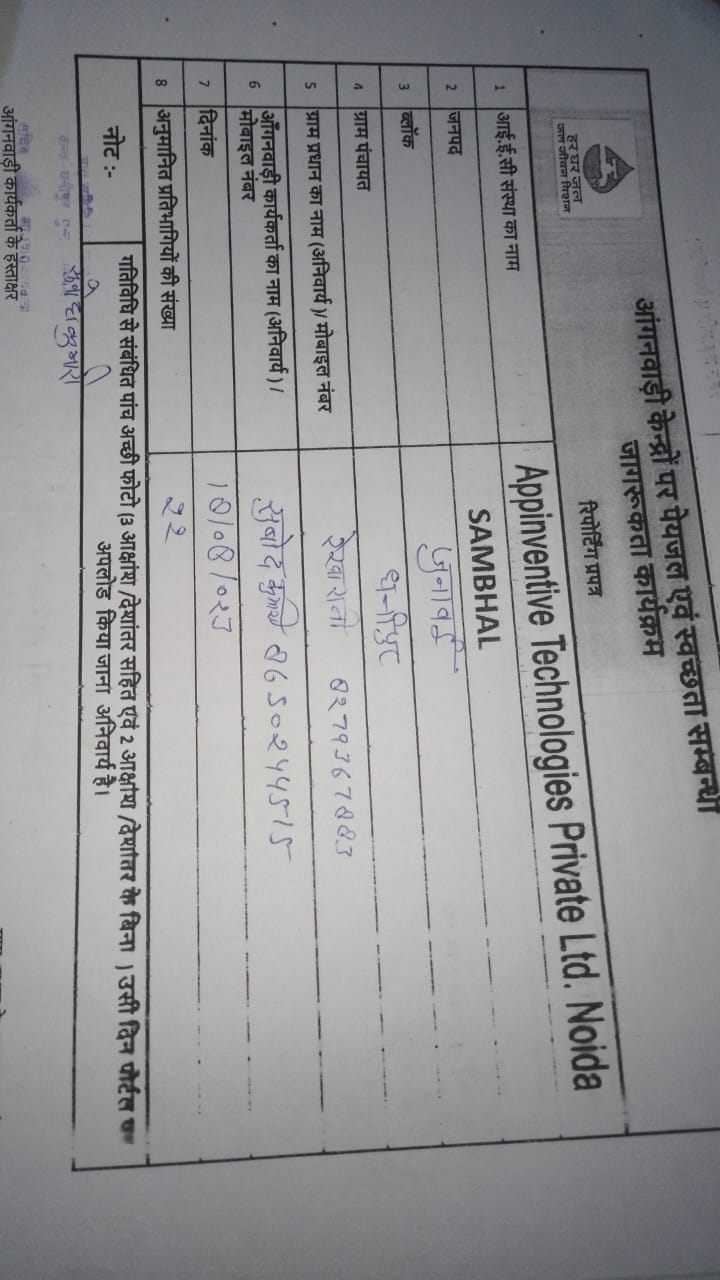 आंगनवाड़ी केन्द्रों पर पेयजल एवं स्वच्छता सम्बन्धी
जागरूकता कार्यक्रम
रिपोर्टिंग प्रपत्र
हर घर जल
जल जीवन मिशन
1 आई.ई.सी संस्था का नाम Appinventive Technologies Private Ltd. Noida
2 जनपद SAMBHAL
3 ब्लॉक जुनावई
4 ग्राम पंचायत धनीपुर
5 ग्राम प्रधान का नाम (अनिवार्य)/ मोबाइल नंबर रेखा रानी
6 आँगनवाड़ी कार्यकर्ता का नाम (अनिवार्य) /
मोबाइल नंबर सुबोद कुमारी
7 दिनांक
8 अनुमानित प्रतिभागियों की संख्या 22
नोट :- गतिविधि से संबंधित पांच अच्छी फोटो (3 आक्षांश /देशांतर सहित एवं 2 आक्षांश /देशांतर के बिना ) उसी दिन पोर्टल पर
अपलोड किया जाना अनिवार्य है।
आंगनवाड़ी कार्यकर्ता के हस्ताक्षर